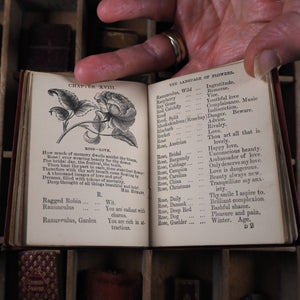 CHAPTER XVIII.
ROSE—LOVE.
How much of memory dwells amidst thy bloom,
Rose! ever wearing beauty for thy dower
The bridal day—the festival—the tomb—
Thou hast thy part in each,
Therefore with thy soft breath come floating by
A thousand images of love and grief,
Dreams, filled with tokens of mortality,
Deep thoughts of all things beautiful and brief.
MRS. HEMANS.
R.
Ragged Robin — Wit.
Ranunculus — You are radiant with charms.
Ranunculus, Garden You are rich in attractions.
THE LANGUAGE OF FLOWERS.
Ranunculus, Wild Ingratitude.
Raspberry Remorse.
Ray Grass Vice.
Reed Complaisance. Music
Reed, Split Indiscretion.
Rhododendron (Rosebay) Danger. Beware.
Rhubarb Advice.
Rocket Rivalry.
Rose Love.
Rose, Austrian Thou art all that is lovely.
Rose, Bridal Happy love.
Rose, Burgundy Unconscious beauty
Rose, Cabbage Ambassador of love
Rose, Campion Only deserve my love
Rose, Carolina Love is dangerous
Rose, China Beauty always new.
Rose, Christmas Tranquillize my anxiety.
Rose, Daily Thy smile I aspire to.
Rose, Damask Brilliant complexion
Rose, Deep Red Bashful shame.
Rose, Dog Pleasure and pain.
Rose, Guelder Winter. Age.
D 2